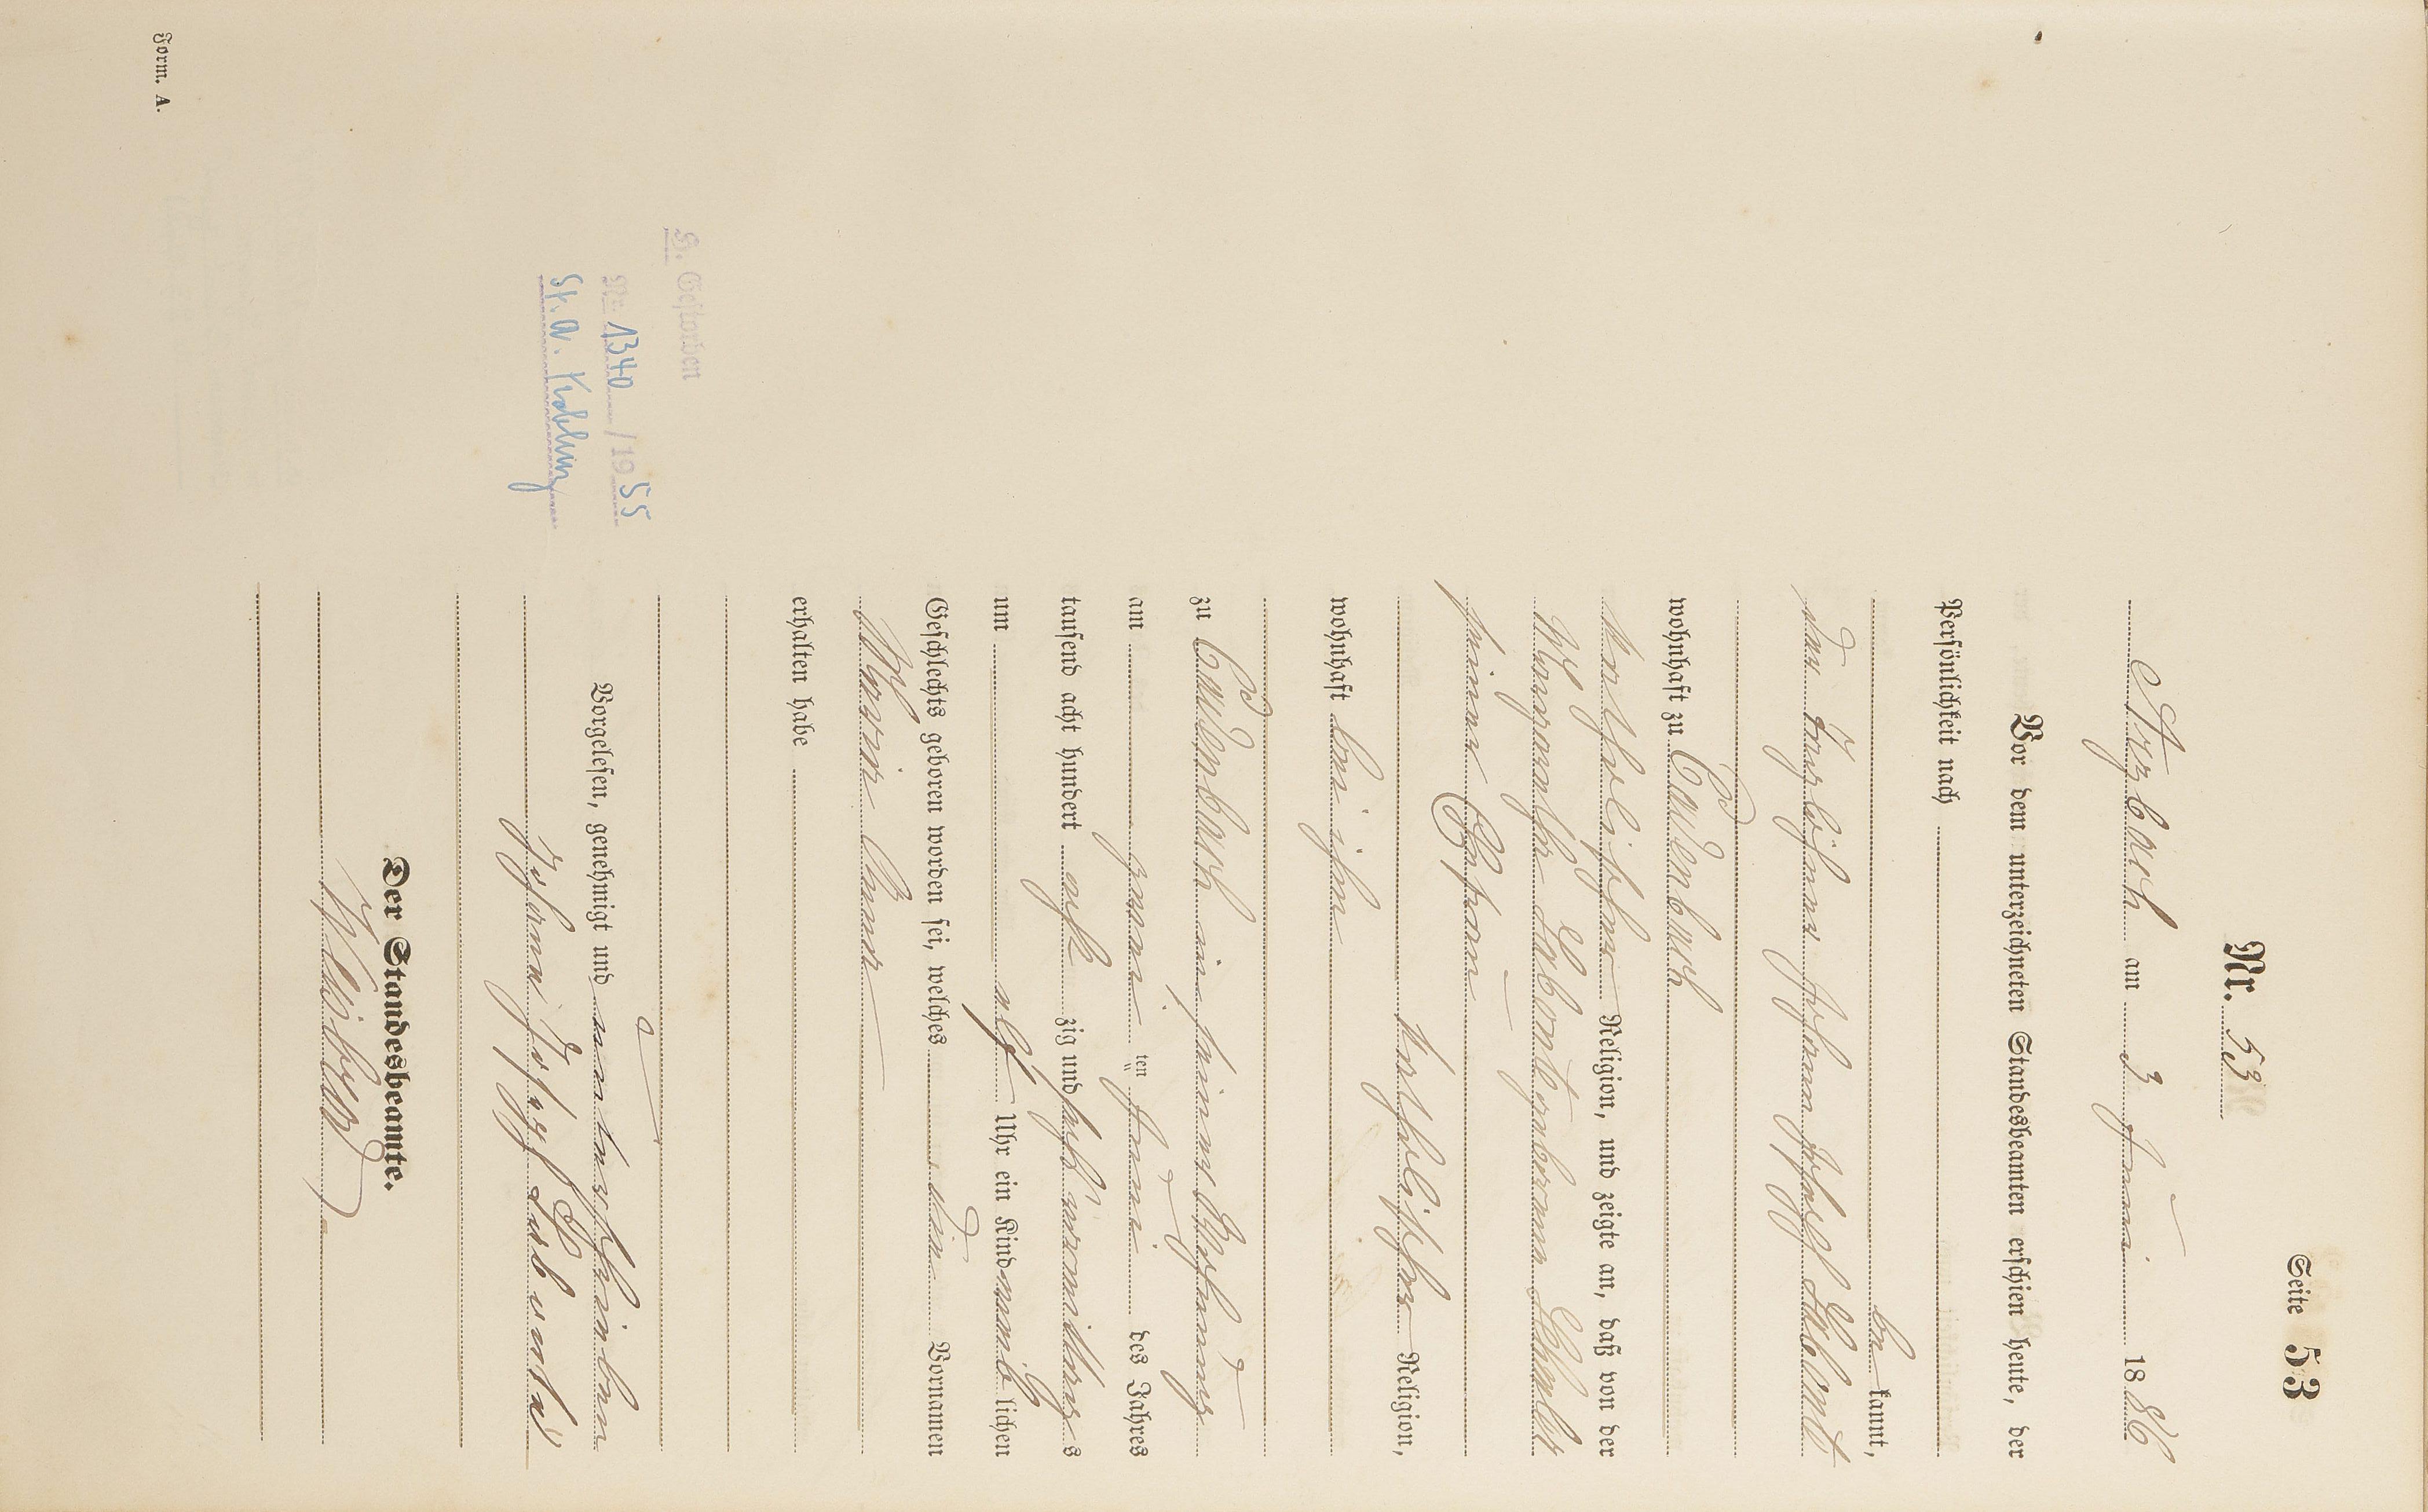 Seite 53
Nr. 53
Arzbach am 3 Juni 1886
Vor dem unterzeichneten Standesbeamten erschien heute, der
Persönlichkeit nach
be kannt,
der Johann Joseph
wohnhaft zu Cadenbach
katholischer Religion, und zeigte an, daß von der
Margaretha geborene
seiner Ehefrau
katholischer Religion,
wohnhaft bei ihm
zu Cadenbach in seiner Wohnung
am zwei ten Juni des Jahres
tausend acht hundert acht zig und sechs Vormittags
um elf Uhr ein Kind weib lichen
Geschlechts geboren worden sei, welches die Vornamen
Maria Anna
erhalten habe
Vorgelesen, genehmigt und unterschrieben
Johann Josef
Der Standesbeamte.
H. Gestorben
Nr. 1340 /1955
St. A. Koblenz
Form. A.